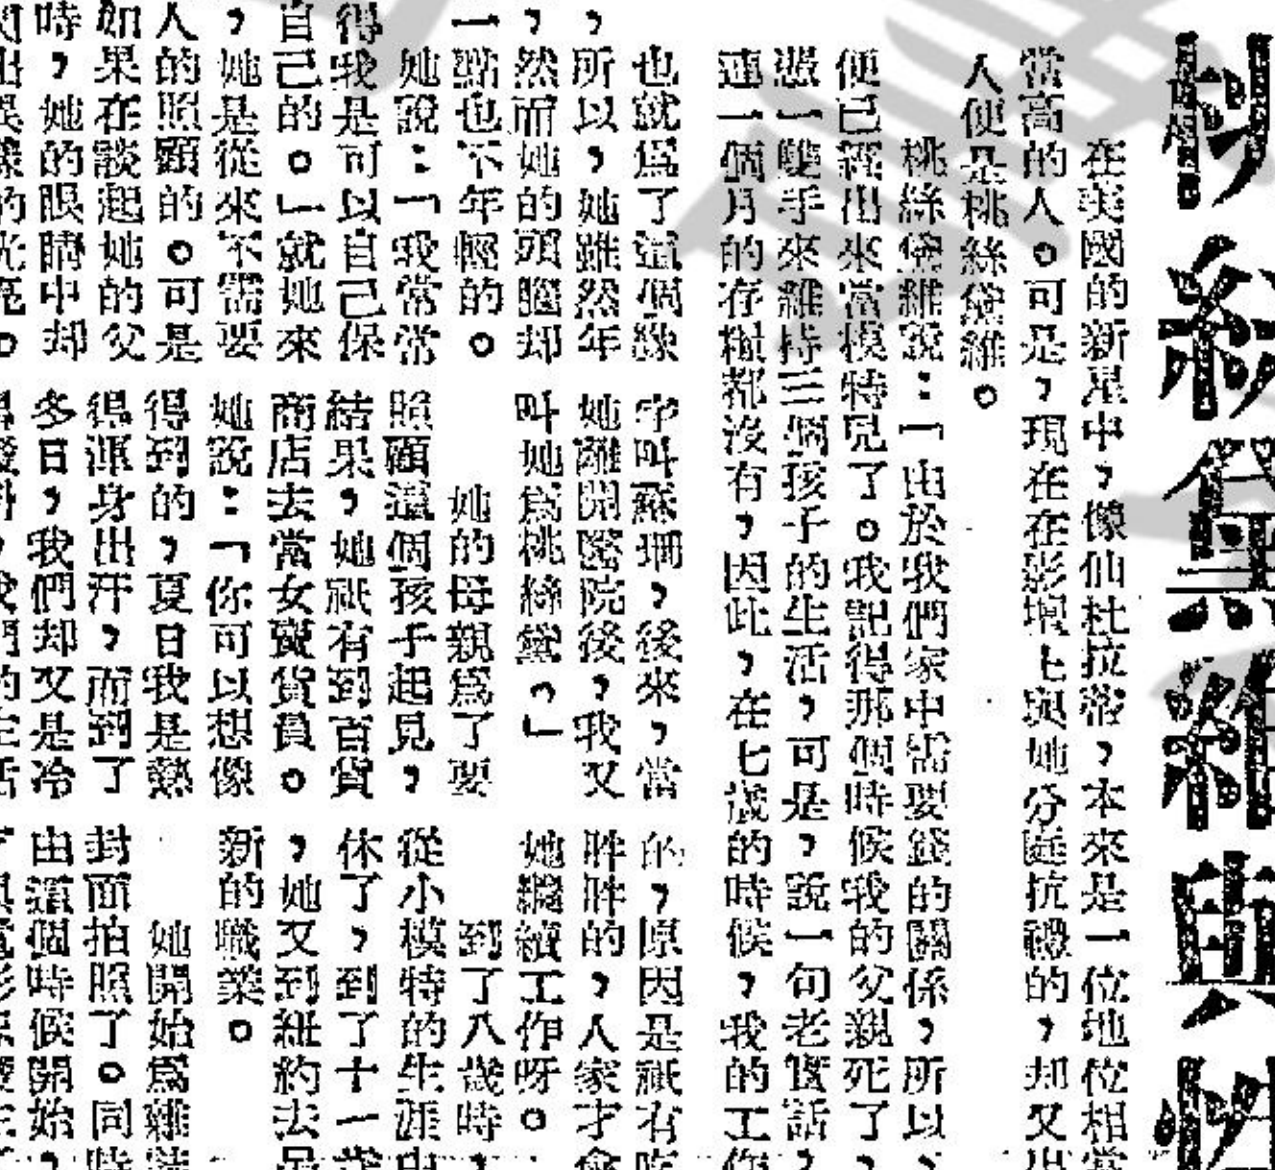 桃絲黛維與她
在美國的新星中，像仙杜拉蒂，本來是一位地位相當
當高的人。可是，現在在影壇上與她分庭抗禮的，却又出
人便是桃絲黛維。
桃絲黛維說：「由於我們家中需要錢的關係，所以、
便已經出來當模特兒了。我記得那個時候我的父親死了，
憑一雙手來維持三個孩子的生活，可是，說一句老實話，
連一個月的存糧都沒有，因此，在七歲的時候，我的工作
也就爲了這個緣
，所以，她雖然年
，然而她的頭腦却
一點也不年輕的。
她說：「我常常
得我是可以自己保
自己的。」就她來
，她是從來不需要
人的照顧的。可是
如果在談起她的父
時，她的眼睛中却
閃出異樣的光亮。
字叫蘇珊，後來，當
她離開醫院後，我又
叫她爲桃絲黛。」
她的母親爲了要
照顧這個孩子起見，
結果，她祇有到百貨
商店去當女賣貨員。
她說：「你可以想像
得到的，夏日我是熱
得渾身出汗，而到了
多日，我們却又是冷
得發抖，我們的生活
的，原因是祇有吃
胖胖的，人家才會
她繼續工作呀。
到了八歲時，
從小模特的生涯中
休了，到了十一歲
，她又到紐約去
新的職業。
她開始爲雜誌
封面拍照了。同時
由這個時候開始，